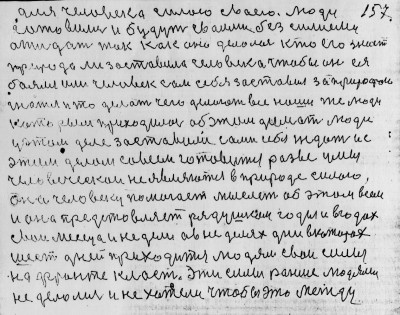 для человека силою своею. Люди 157.
готовили и будут своими без силием
ожидат так как оно делалос кто его знает
природа ли заставила человека чтобы он ея
боялся или человек сам себя заставил за природою
что делат чего делают все наши же люди
которым приходилос об этом думат люди
в этом деле заставили сами себя ждат и с
этим делом совсем готовится разве цели
человеческой не являются в природе силою,
она человеку помогает мыслет об этом всем
и она представляет рядушком годы и в годах
свои месяца и недели а в неделях дни в которых
шест дней приходится людям свои силы
на фронте класт. Эти силы раньше людями
не делолис и не хотели чтобы это между